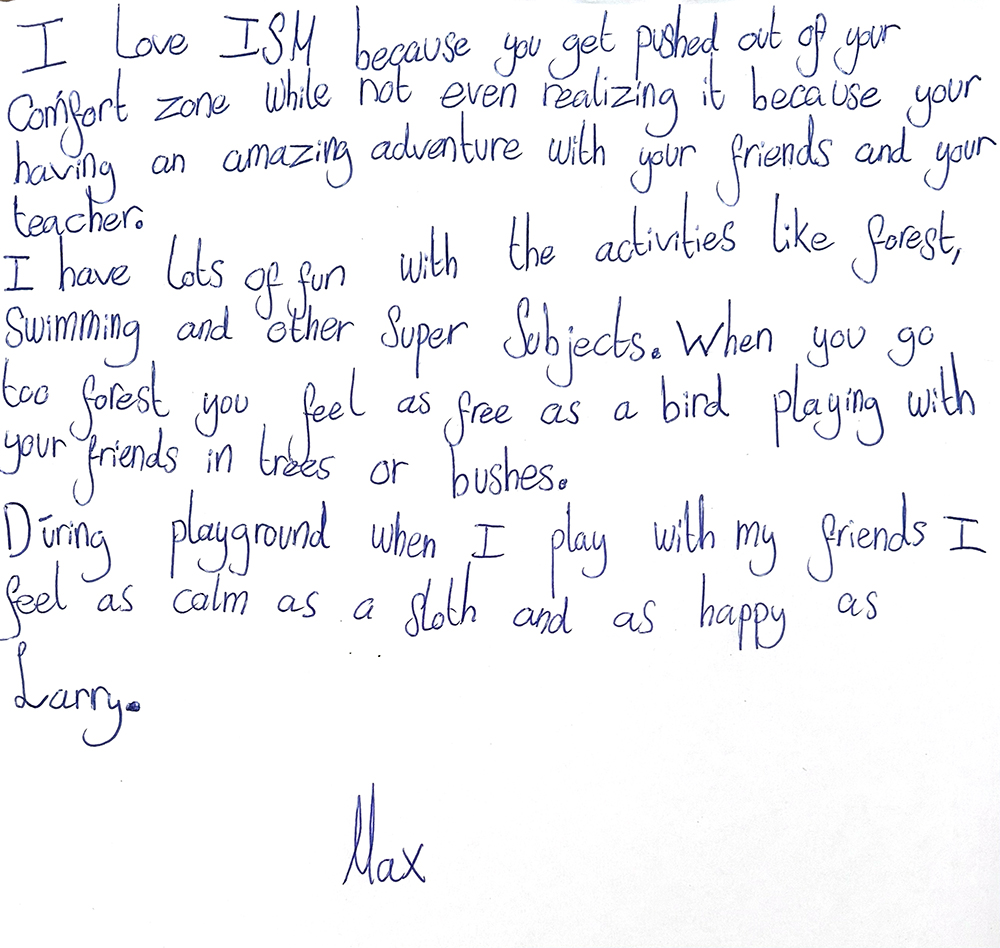 I Love ISM because you get pushed out of your
Comfort zone while not even realizing it because your
having an amazing adventure with your friends and your
teacher.
I have lots of fun with the activities like forest,
Swimming and other Super Subjects. When you go
too forest you feel as free as a bird playing with
your friends in trees or bushes.
During playground when I play with my friends I
feel as calm as a sloth and as happy as
Larry.
Max